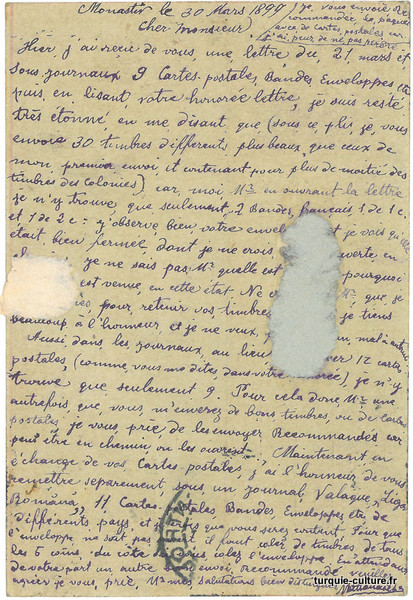 Monastir le 30 Mars 1899
Cher Monsieur
je vous envoie
commandée le paquet
de cartes postales car
j'ai peur de ne pas perdre
Hier j'ai reçu de vous une lettre du 21 mars et
sous journaux 9 Cartes postales, Bandes Enveloppes, etc
puis, en lisant votre honorée lettre, je suis resté
très étonné en me disant que (sous ce plis je vous
envoie 30 timbres différents plus beaux que ceux de
mon premier envoi et contenant pour plus de moitié des
timbres des Colonies) car, moi Mr en ouvrant la lettre
je n'y trouve que seulement 2 Bandes français 1 de 1c.
et 1 de 2c: j'observe bien votre env et je vois qu'elle
était bien fermée dont je ne crois verte en
je ne sais pas Mr quelle est pourquoi
est venue en cette état Ne c que je
pour retenir vos timbres je tiens
beaucoup à l'honneur et je ne veux
Aussi dans les journaux, au lieu er 12 cartes
postales, (comme vous me dites dans votre ée) je n'y
trouve que seulement 9. Pour cela donc Mr une
autrefois que vous m'enverez de bons timbres, ou de cartes
postales, je vous prie de les envoyer Recommandés car
peut être en chemin on les ouvrent. Maintenant en
échange de vos Cartes postales j'ai l'honneur de vous
remettre separement, sous un journal Valaque
Română, 11 Cartes postales Bandes Enveloppes etc de
différents pays, et que vous serez content Pour que
l'enveloppe ne soit pas il faut colez de timbres de tous
les 5 coins du côté ous colez l'enveloppe En attendant
de votre part un autre envoi, recommandé veuillez
agréer je vous prie, Mr mes salutations bien distinguées
turquie-culture.fr